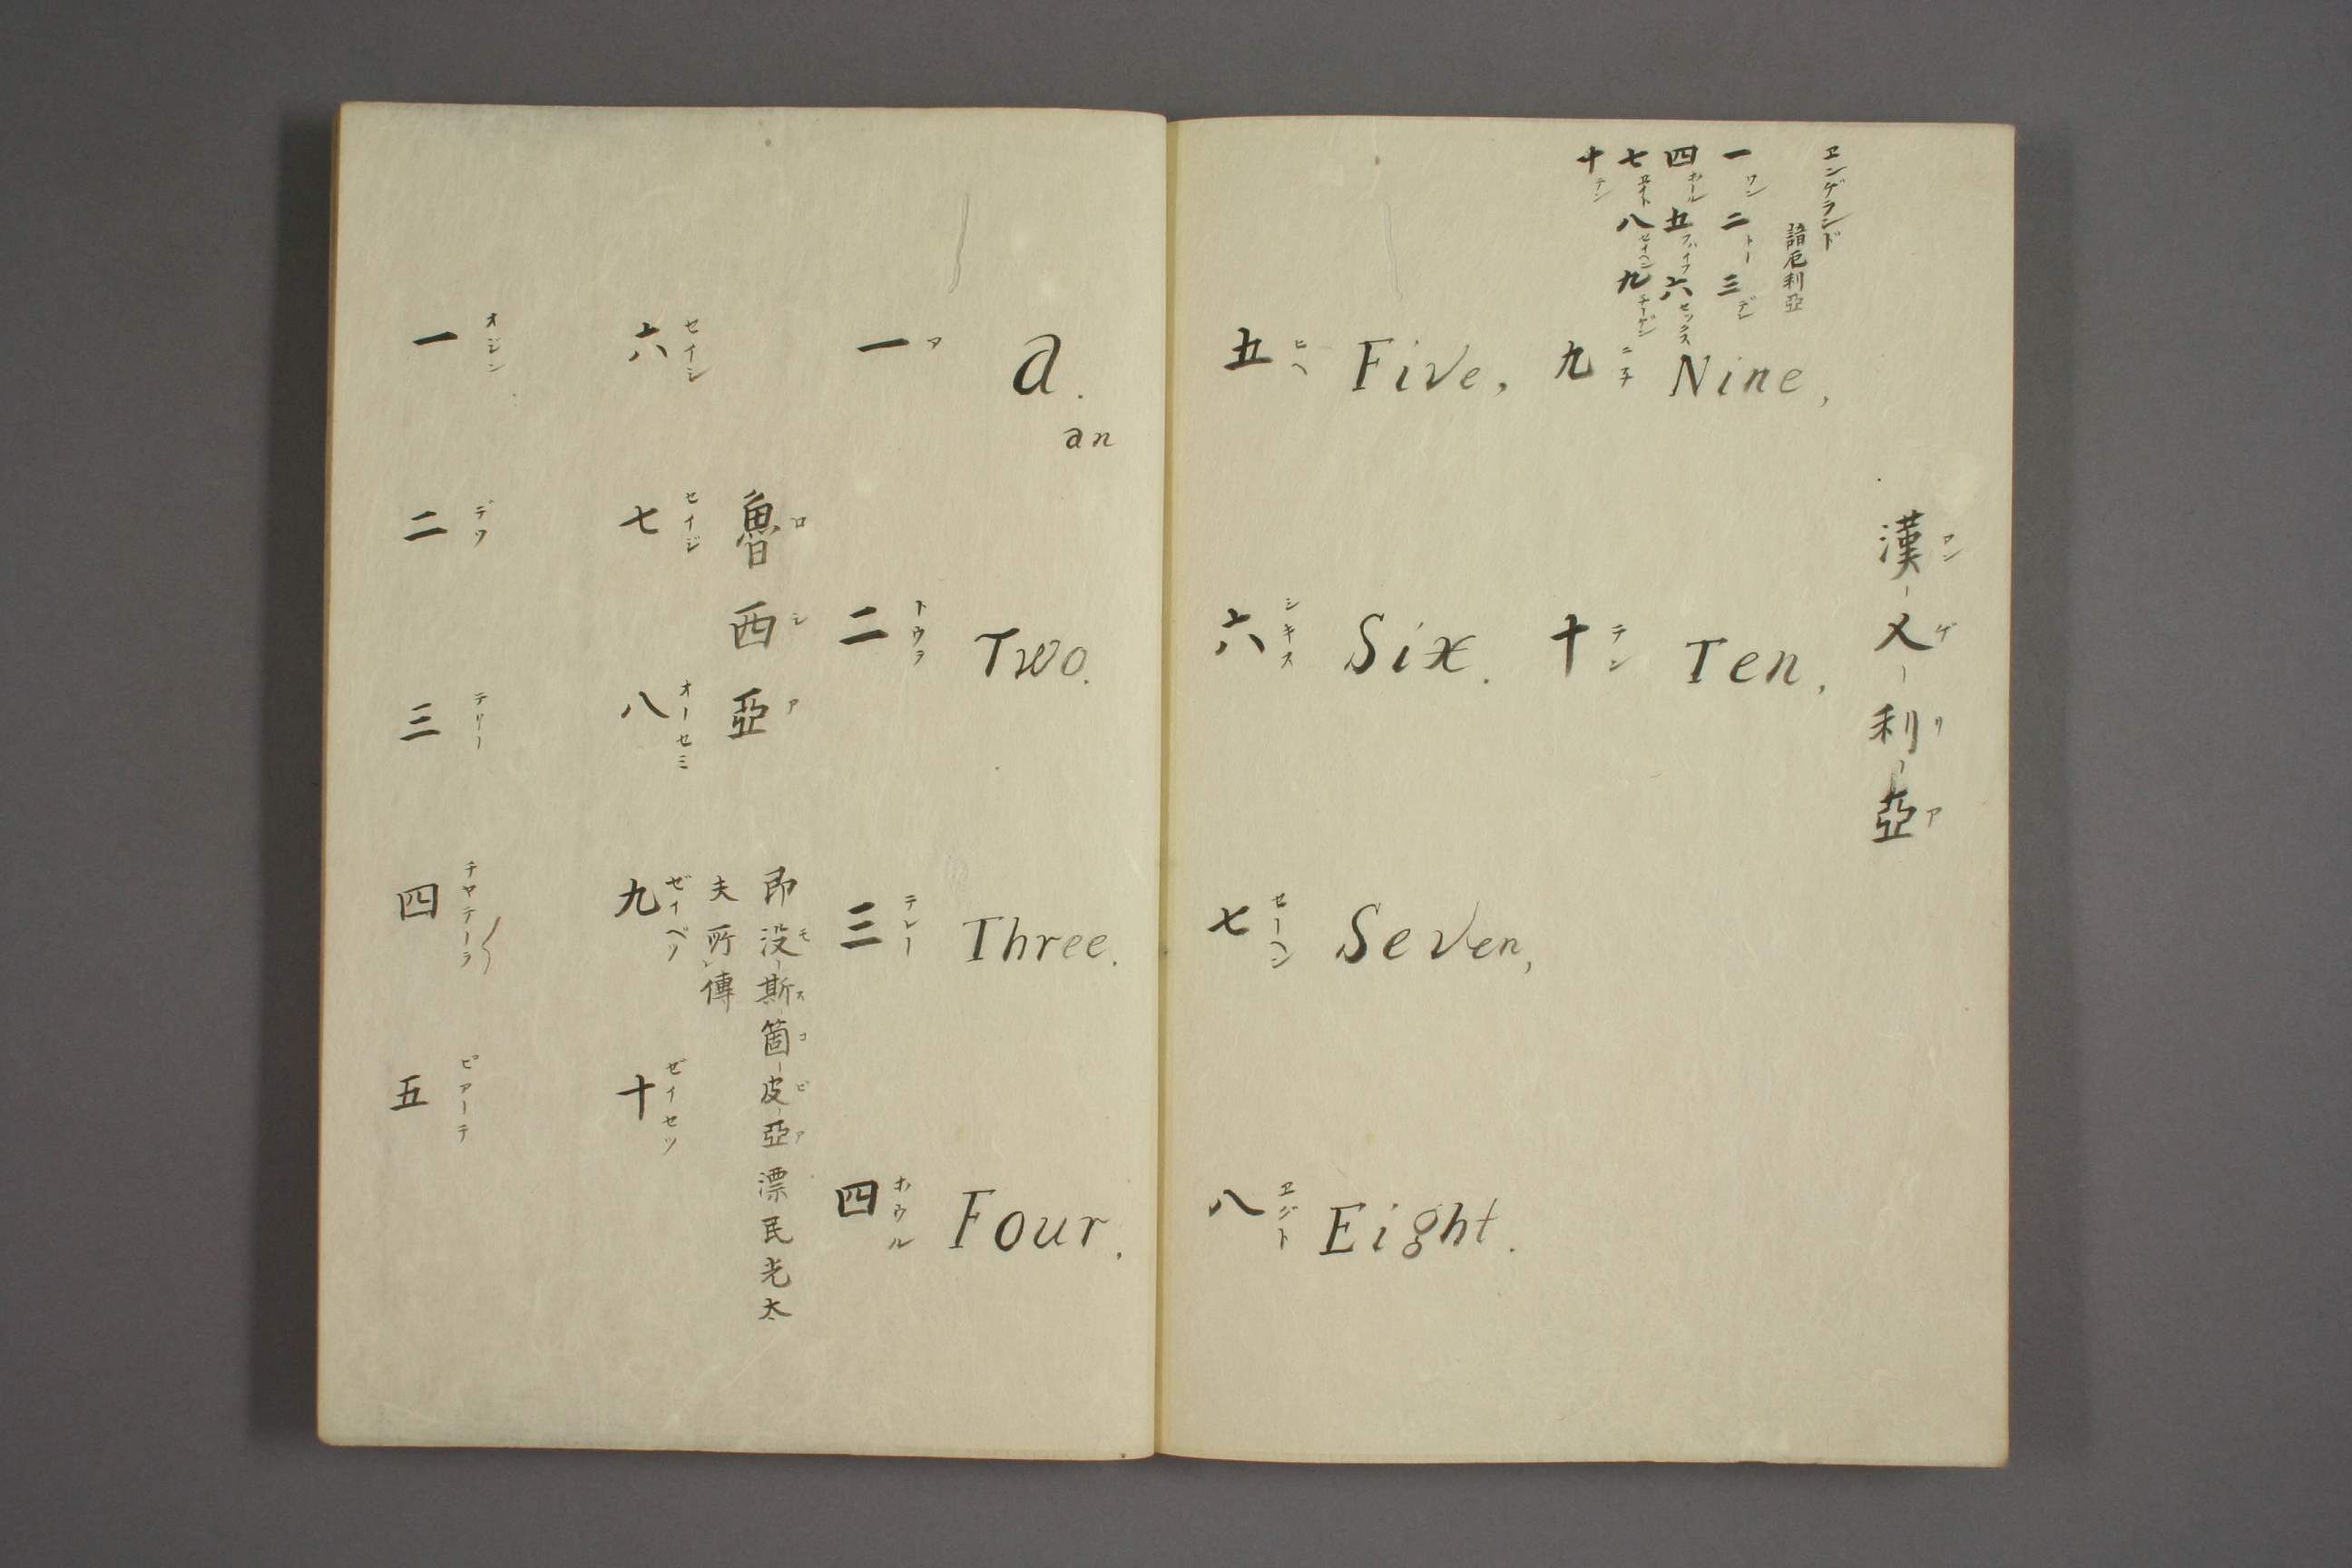 漢乂利亞
アンゲリア
ヱンゲランド
諳厄利亞
一 ワン 二 トー 三
四 ホール 五 フハイフ 六 セックス
七 ヱイト 八 セイヘン 九
十 テン
九 ニ子 Nine,
十 テン Ten,
五 ヒヘ Five,
六 シキス Six.
七 セーヘン Seven,
八 ヱジト Eight.
一 ア a. an
二 トウヲ Two.
三 テレー Three.
四 ホウル Four,
魯西亞
ロシア
即没斯箇皮亞漂民光太
モスコビア
夫所傳
六 セイシ
七 セイジ
八 オーセミ
九 ゼイベツ
十 ゼイセツ
一 オジン
二 デワ
三 テリー
四 チヤテーラ
五 ピアーテ